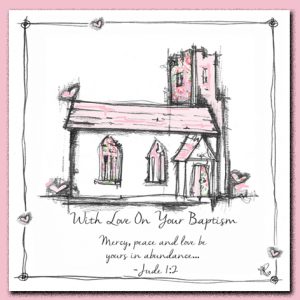 With Love On Your Baptism
Mercy, peace and love be
yours in abundance...
~Jude 1:2